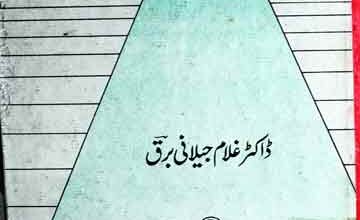 ڈاکٹر غلام جیلانی برق